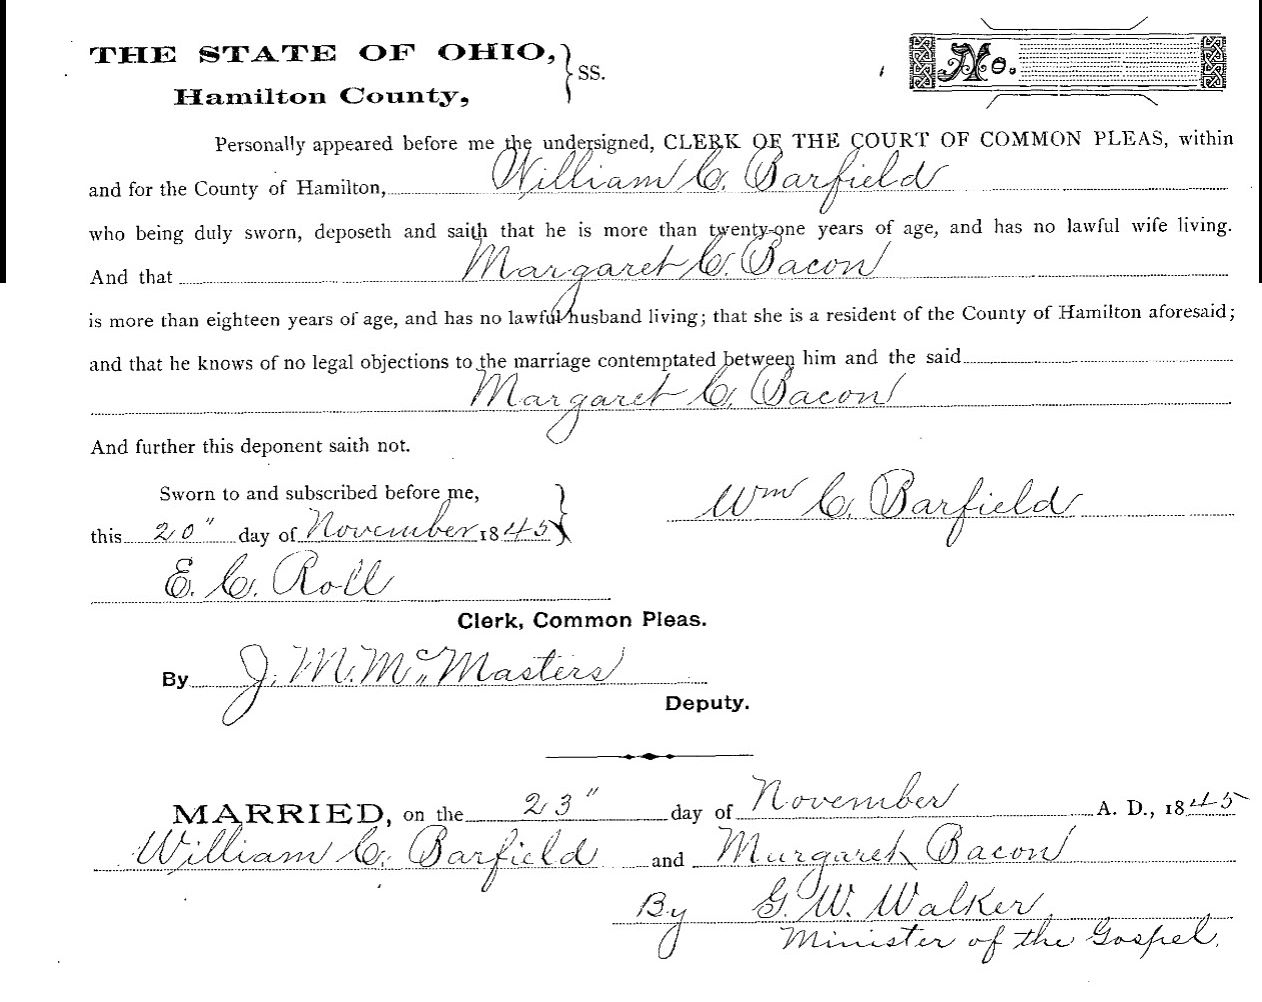 THE STATE OF OHIO,
Hamilton County,
} SS.
No.
Personally appeared before me the undersigned, CLERK OF THE COURT OF COMMON PLEAS, within
and for the County of Hamilton, William C. Barfield
who being duly sworn, deposeth and saith that he is more than twenty-one years of age, and has no lawful wife living.
And that Margaret C. Bacon
is more than eighteen years of age, and has no lawful husband living; that she is a resident of the County of Hamilton aforesaid;
and that he knows of no legal objections to the marriage contemptated between him and the said
Margaret C. Bacon
And further this deponent saith not.
Sworn to and subscribed before me,
Wm C. Barfield
this 20" day of November 1845 }
E. C. Roll
Clerk, Common Pleas.
By J. M. McMasters
Deputy.
MARRIED, on the 23" day of November A. D., 1845
William C. Barfield and Margaret Bacon
By G. W. Walker
Minister of the Gospel.